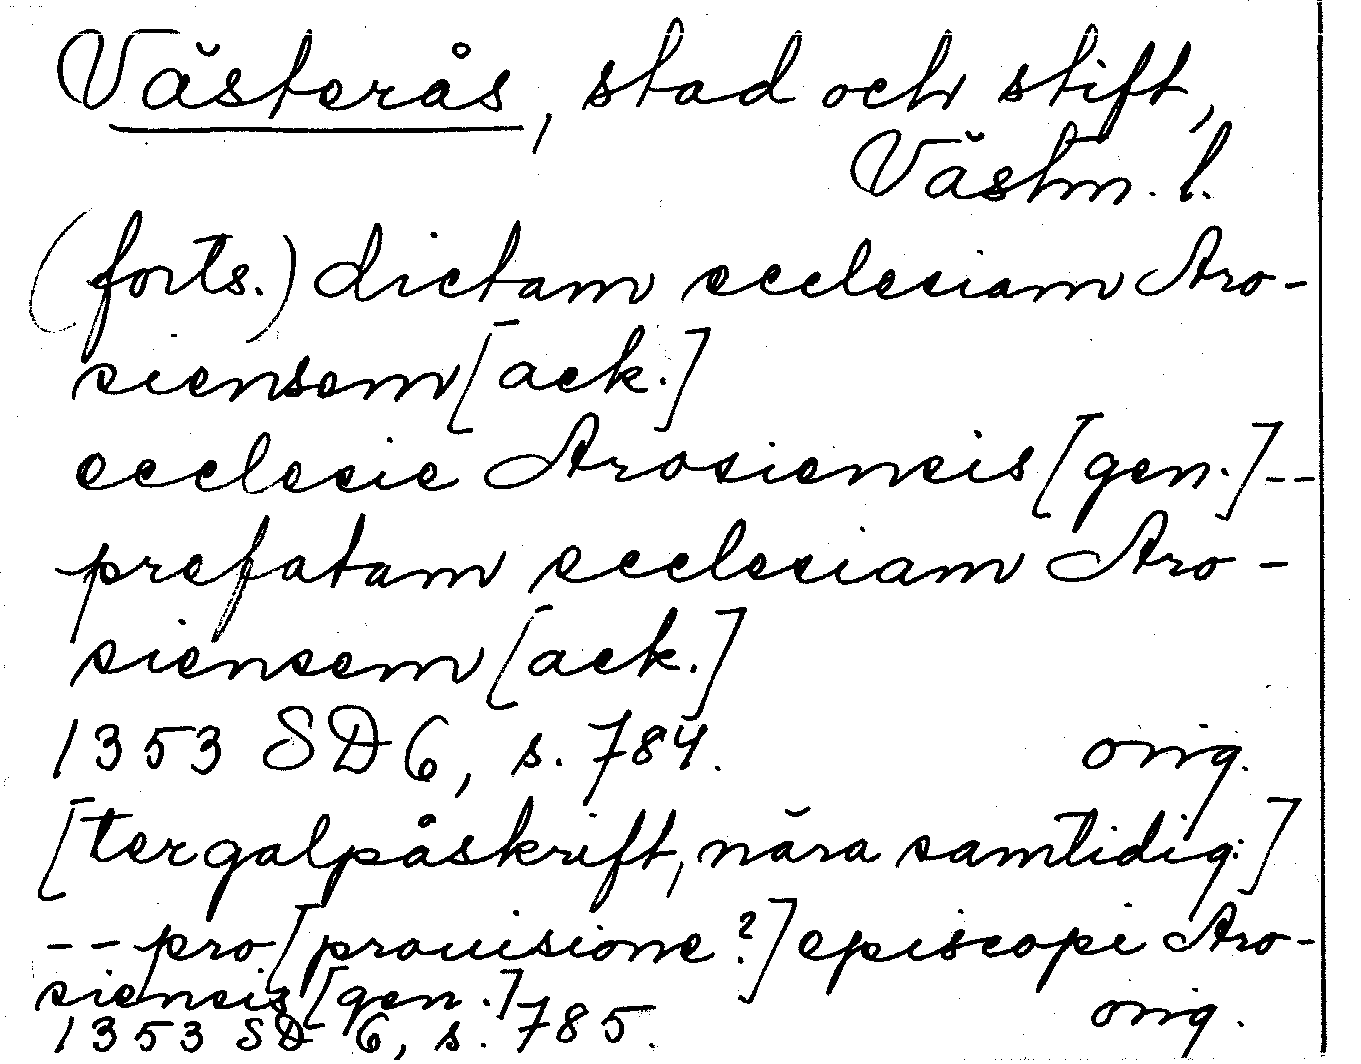 Västerås, stad och stift,
Västm. l.
(forts.) dictam ecclesiam Aro-
siensem [ack.]
ecclesie Arosiensis [gen.] --
prefatam ecclesiam Aro-
siensem [ack.]
1353 SD 6, s. 784. orig.
[tergalpåskrift, nära samtidig:]
-- pro. [prouisione?] episcopi Aro-
siensis [gen.]
1353 SD 6, s. 785. orig.